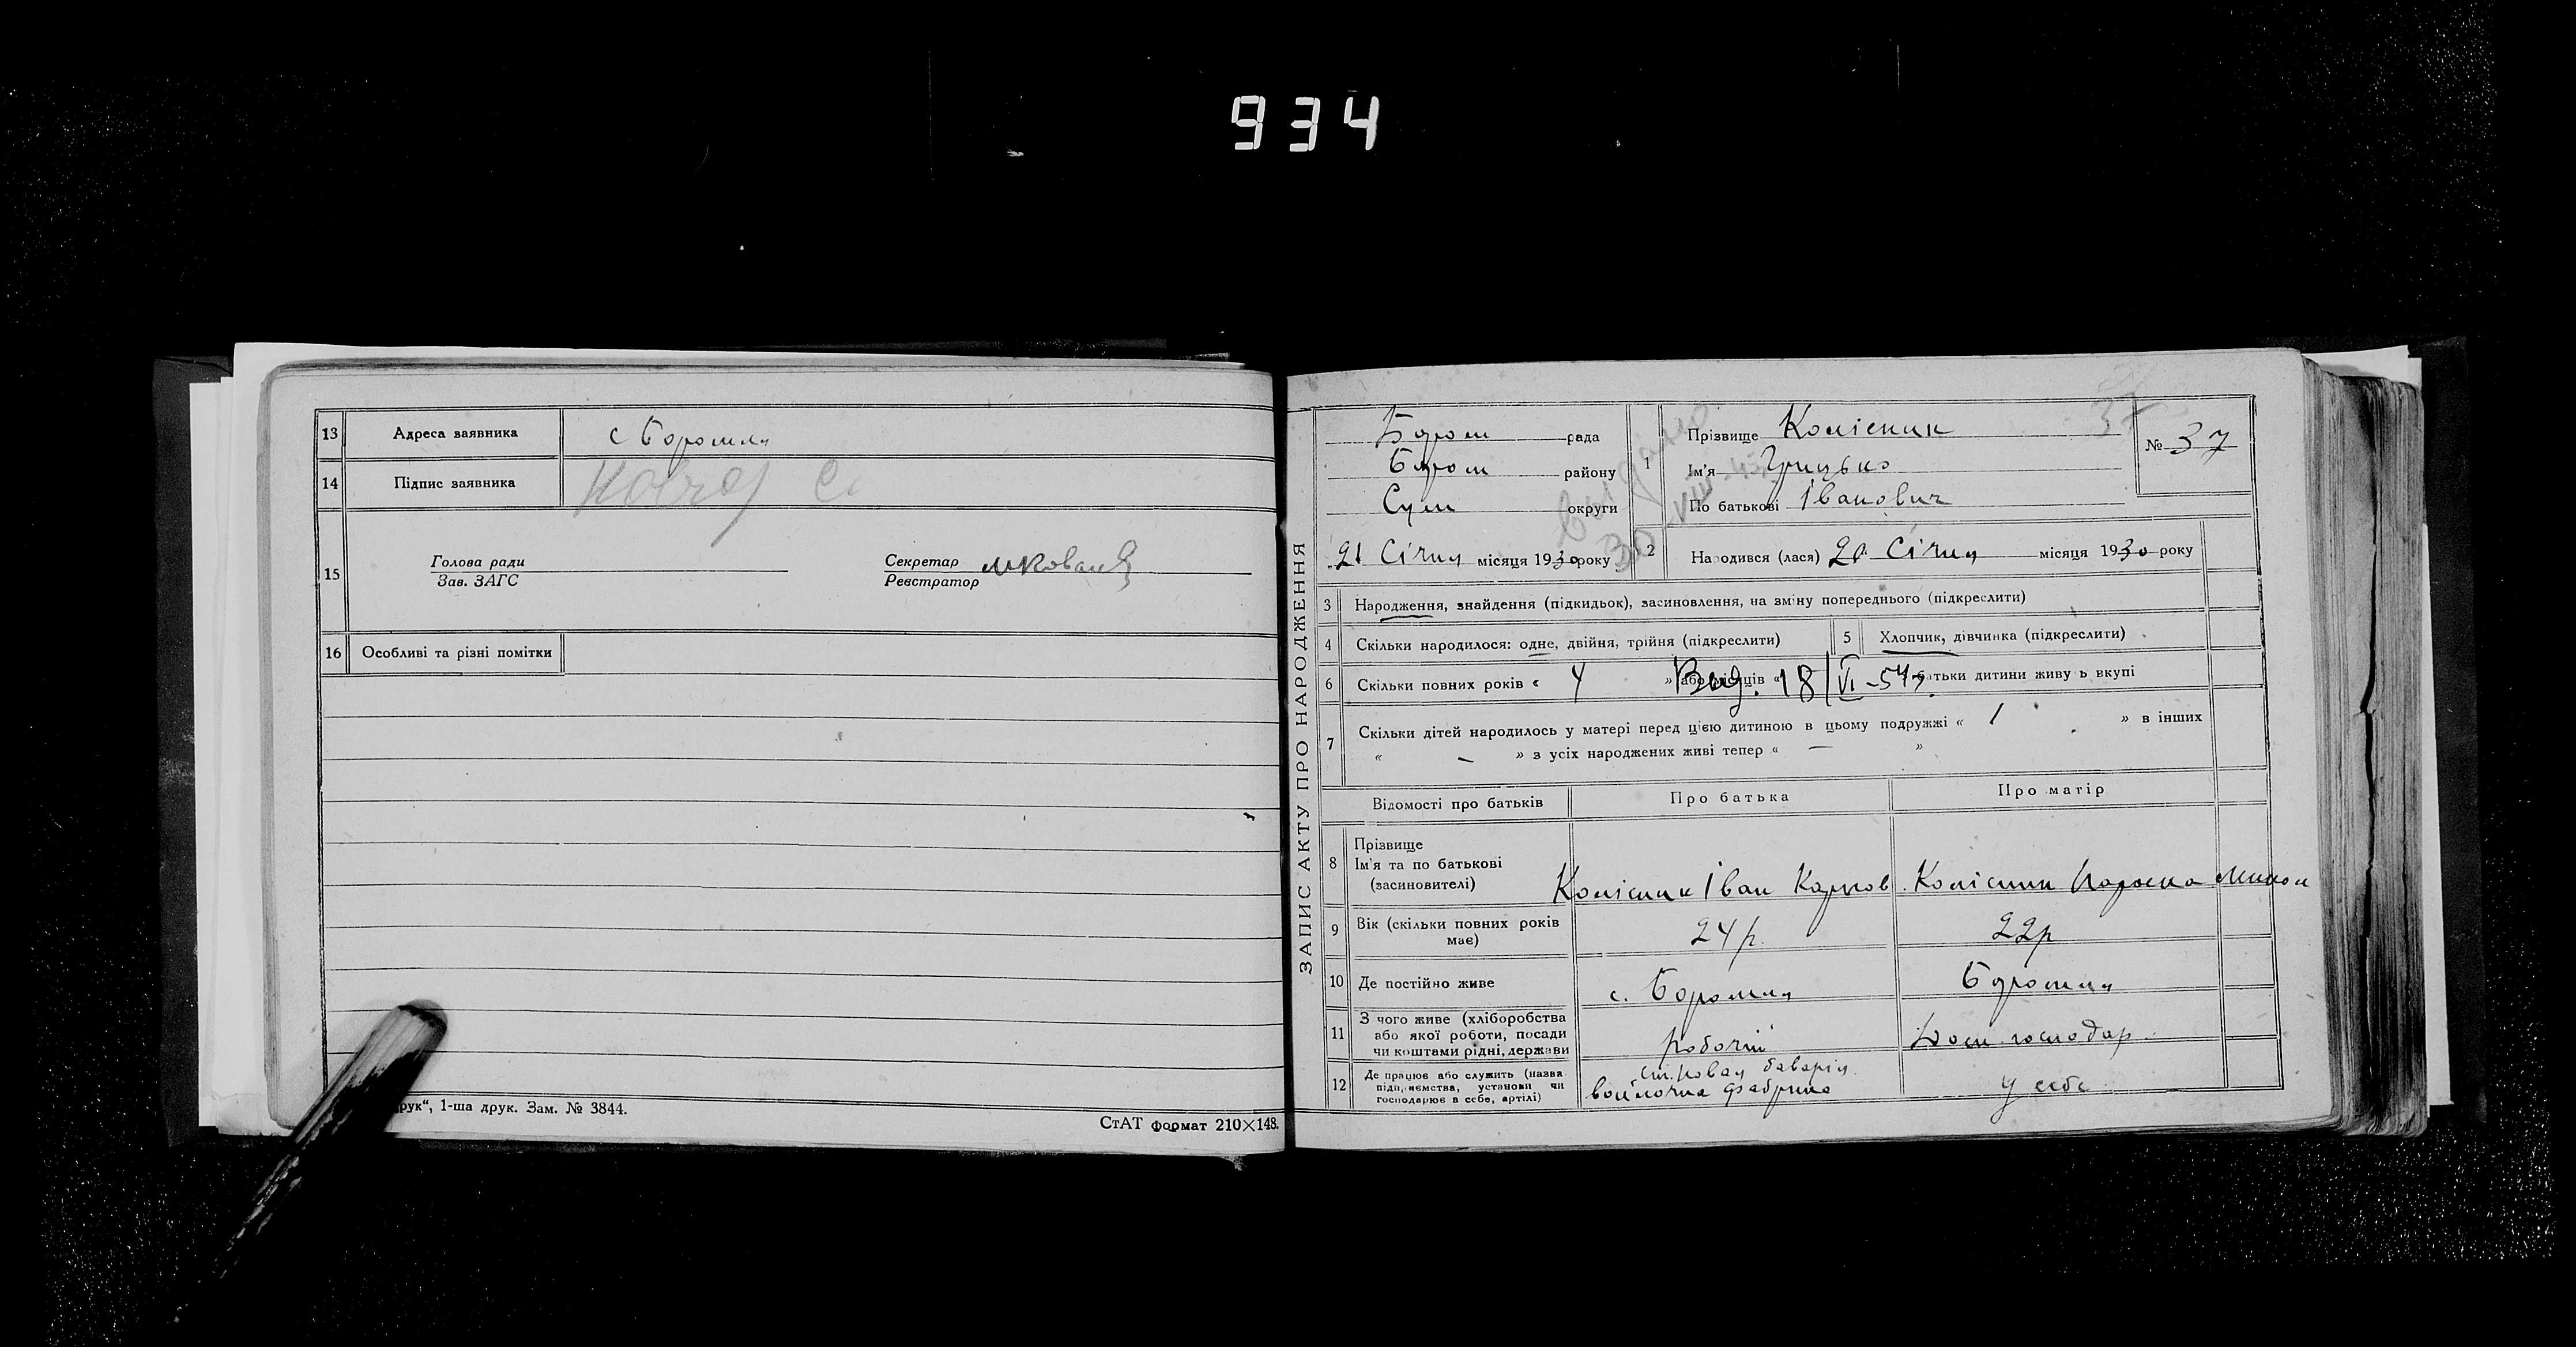 934
13 Адреса заявника с Боромля
14 Підпис заявника
15 Голова ради
Зав. ЗАГС
Секретар
Реєстратор
16 Особливі та різні помітки
рук“, 1-ша друк. Зам. № 3844.
СтАТ формат 210×148.
ЗАПИС АКТУ ПРО НАРОДЖЕННЯ
Бором рада
Бором району
Сум округи
21 Січня місяця 1930 року
37
1 Прізвище Колісник
Ім'я Грицько
По батькові Іванович
№ 37
Видано
2 Народився (лася) 20 Січня місяця 1930 року
3 Народження, знайдення (підкидьок), засиновлення, на зміну попереднього (підкреслити)
4 Скільки народилося: одне, двійня, трійня (підкреслити)
5 Хлопчик, дівчинка (підкреслити)
6 Скільки повних років « 4 » або місяців « батьки дитини живуть вкупі
Вид. 18/VI-54 г.
7 Скільки дітей народилось у матері перед цією дитиною в цьому подружжі « 1 » в інших
« — » з усіх народжених живі тепер « — »
Відомості про батьків Про батька Про матір
8 Прізвище
Ім'я та по батькові
(засиновителі)
Колісник Іван Карпов. Колісник Параска
9 Вік (скільки повних років має) 24 р. 22 р
10 Де постійно живе с. Боромля Боромля
11 З чого живе (хліборобства
або якої роботи, посади
чи коштами рідні, держави
робочий Дом. господар.
12 Де працює або служить (назва
підприємства, установи чи
господарює в себе, артілі)
ст. Новая баварія
войлочна фабрика
у себе